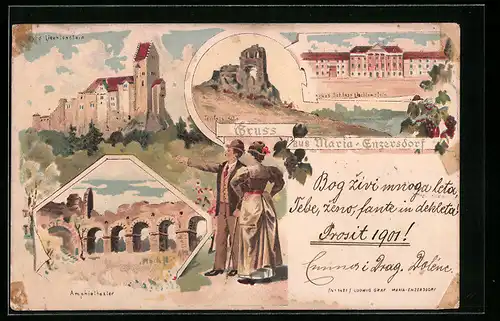 Liechtenstein
Gruss
aus Maria-Enzersdorf
Amphietheater
Bog živi mnoga leta
Tebe, ženo, fante in dekleta!
Prosit 1901!
i Drag. Dolenc.
LUDWIG GRAF MARIA-ENZERSDORF